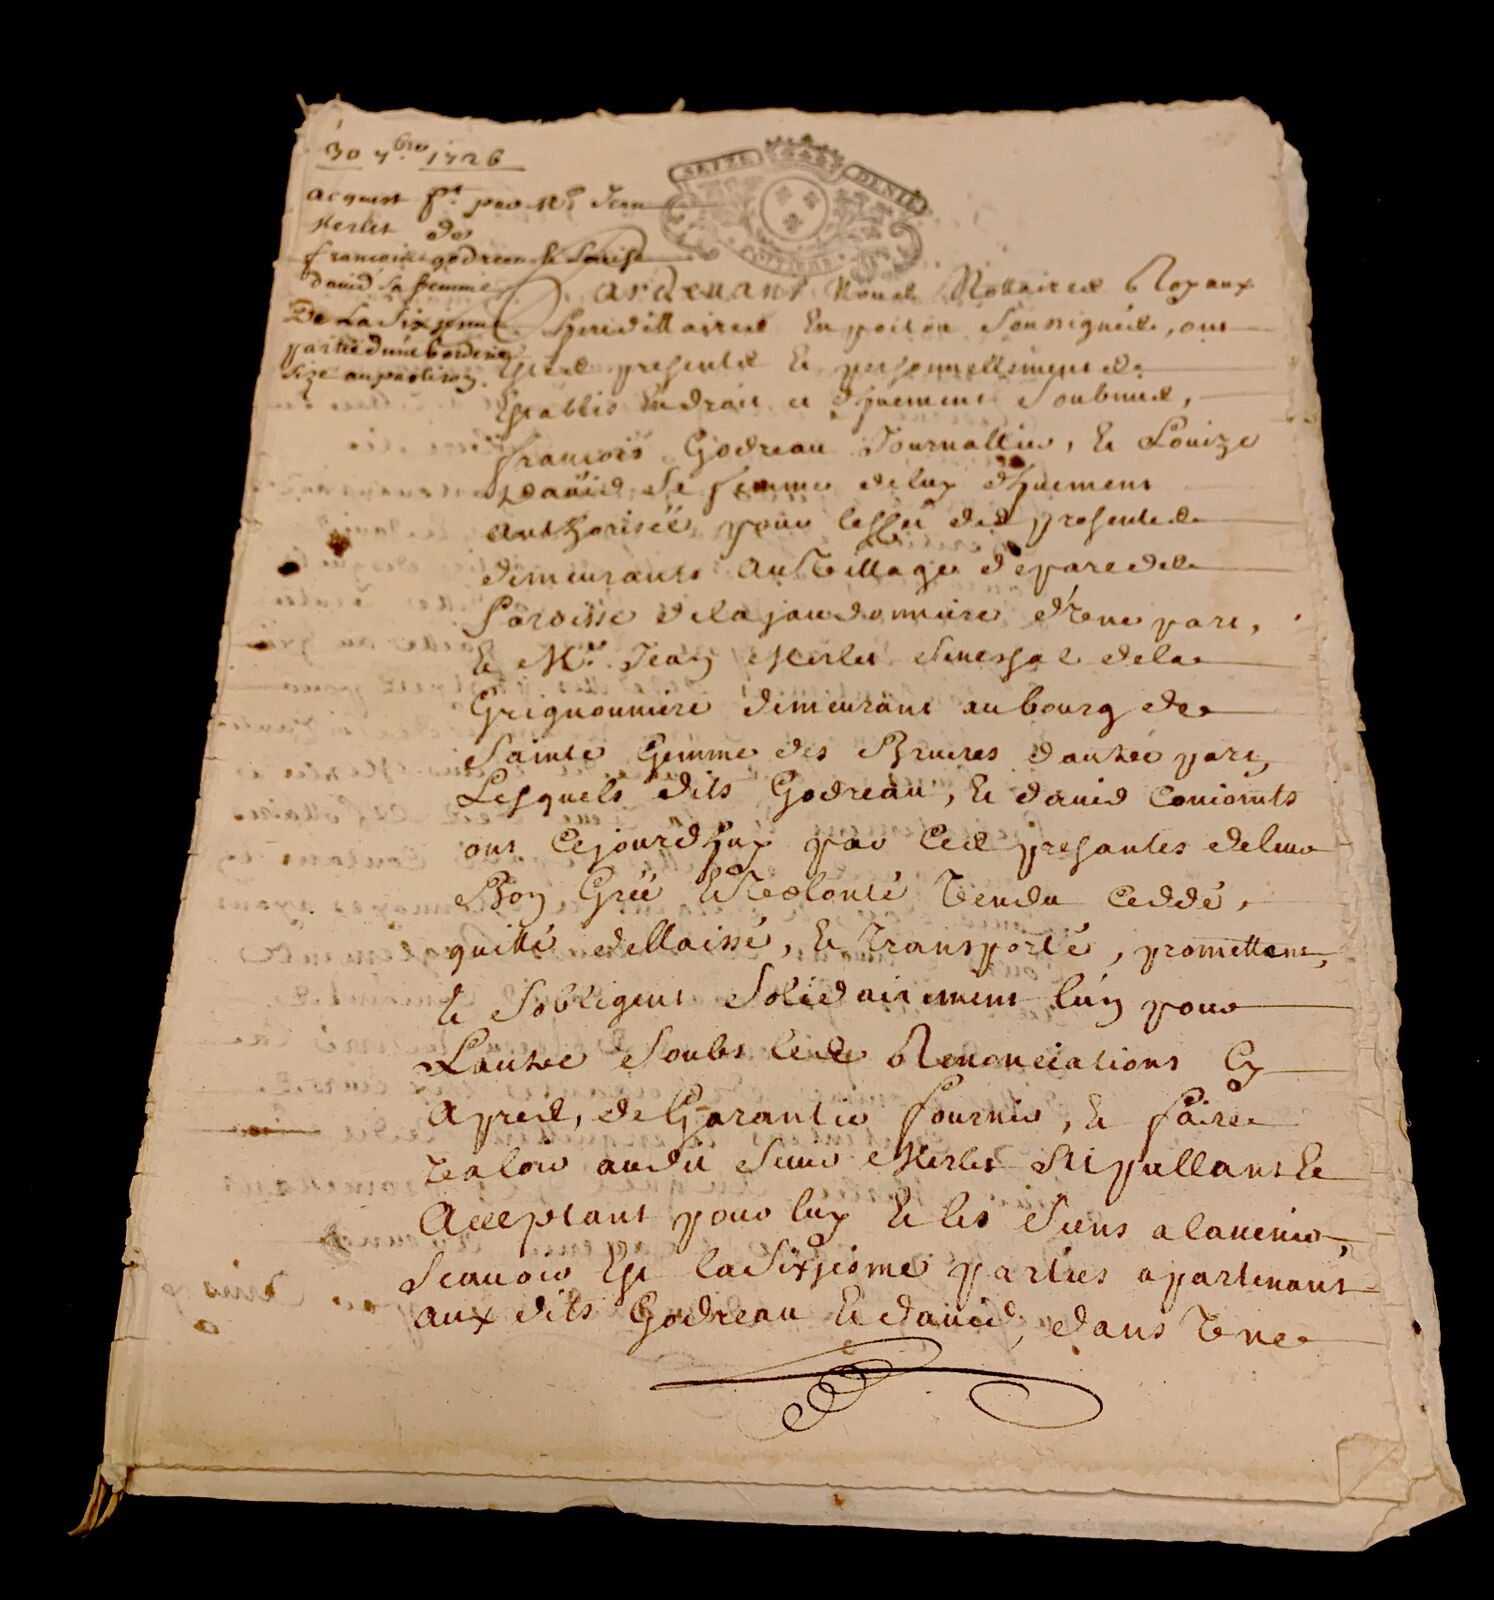 30 7bre 1726
acquest ft par Mr Jean
Merlet de
francois godreau & Louise
david sa femme
De La Sixjeme
partie d'une borderie
size au
SEIZE DENIE
POITIERS
Pardevant Nous Nottaires Royaux
Hereditaires En poitou Soussignéds, ont
Estéds presents Et personnellement
Establis En droit et dhuement Soubmis,
francois Godreau Journallier, Et Louize
David Sa femme de luy dhuement
authorisée pour leffet des presentes
demeurants au Village de parede
Paroisse de la jaudonniere d'Une part,
Et Mr. Jean Merlet Seneshal de la
Grignonniere demeurant au bourg de
Sainte Gemme des Bruieres dautre part,
Lesquels dits Godreau, Et david Conioints
ont Cejourdhuy par Ces presantes de leur
Bon Gré Et Volonté Vendu Ceddé,
quitté dellaissé, Et transporté, promettent,
Et Sobligent Solidairement lun pour
Lautre Soubs les Renonciations Cy
Apres, de Garantir fournir, Et faire
Valoir audit Sieur Merlet Stipullant Et
Acceptant pour luy Et les Siens a lavenir,
Scauoir Est la Sixjesme parties apartenant
aux dits Godreau Et david, dans Vne